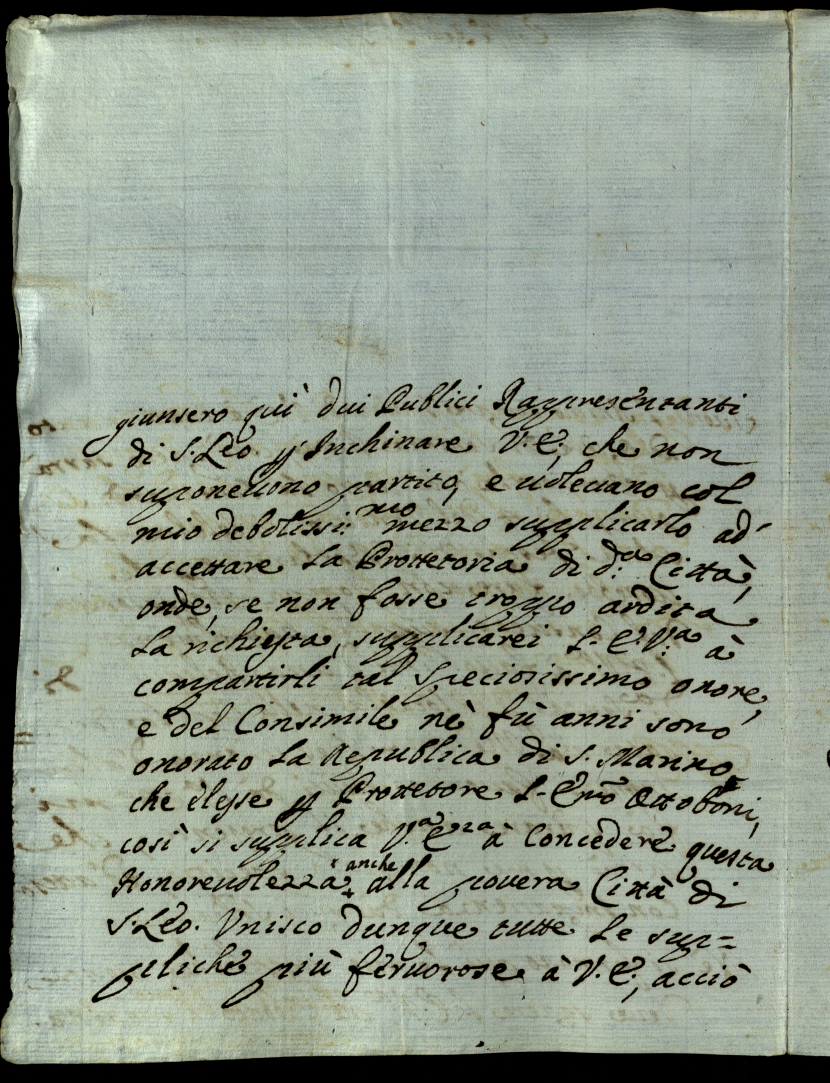 giunsero quì dui Publici Rappresentanti
di S. Leo p Inchinare V. E., che non
suponeuono partito, e uoleuano col
mio debolissi:mo mezzo supplicarlo ad
accettare La Prottetoria di d.a Città,
onde, se non fosse troppo ardita
La richiesta, supplicarei L'E. V.a à
compartirli tal speciosissimo onore,
e del Consimile nè fù anni sono
onorato La Republica di S. Marino
che elesse p Prottetore L'Emo Ottoboni,
così si supplica V.a Eza à Concedere questa
Honoreuolezza anche alla pouera Città di
S. Leo. Vnisco dunque tutte Le sup=
pliche più feruorose à V. E., acciò